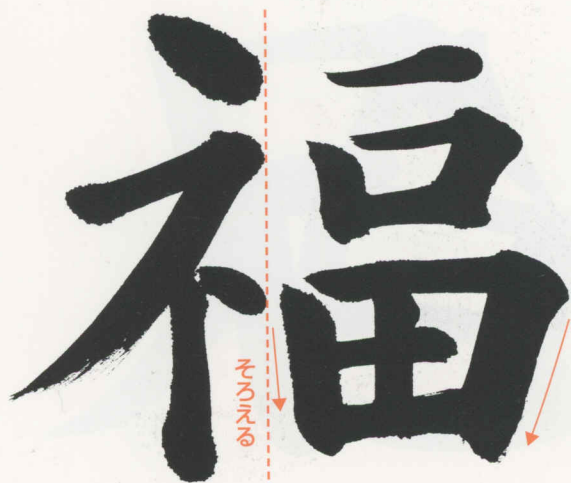 福
そろえる